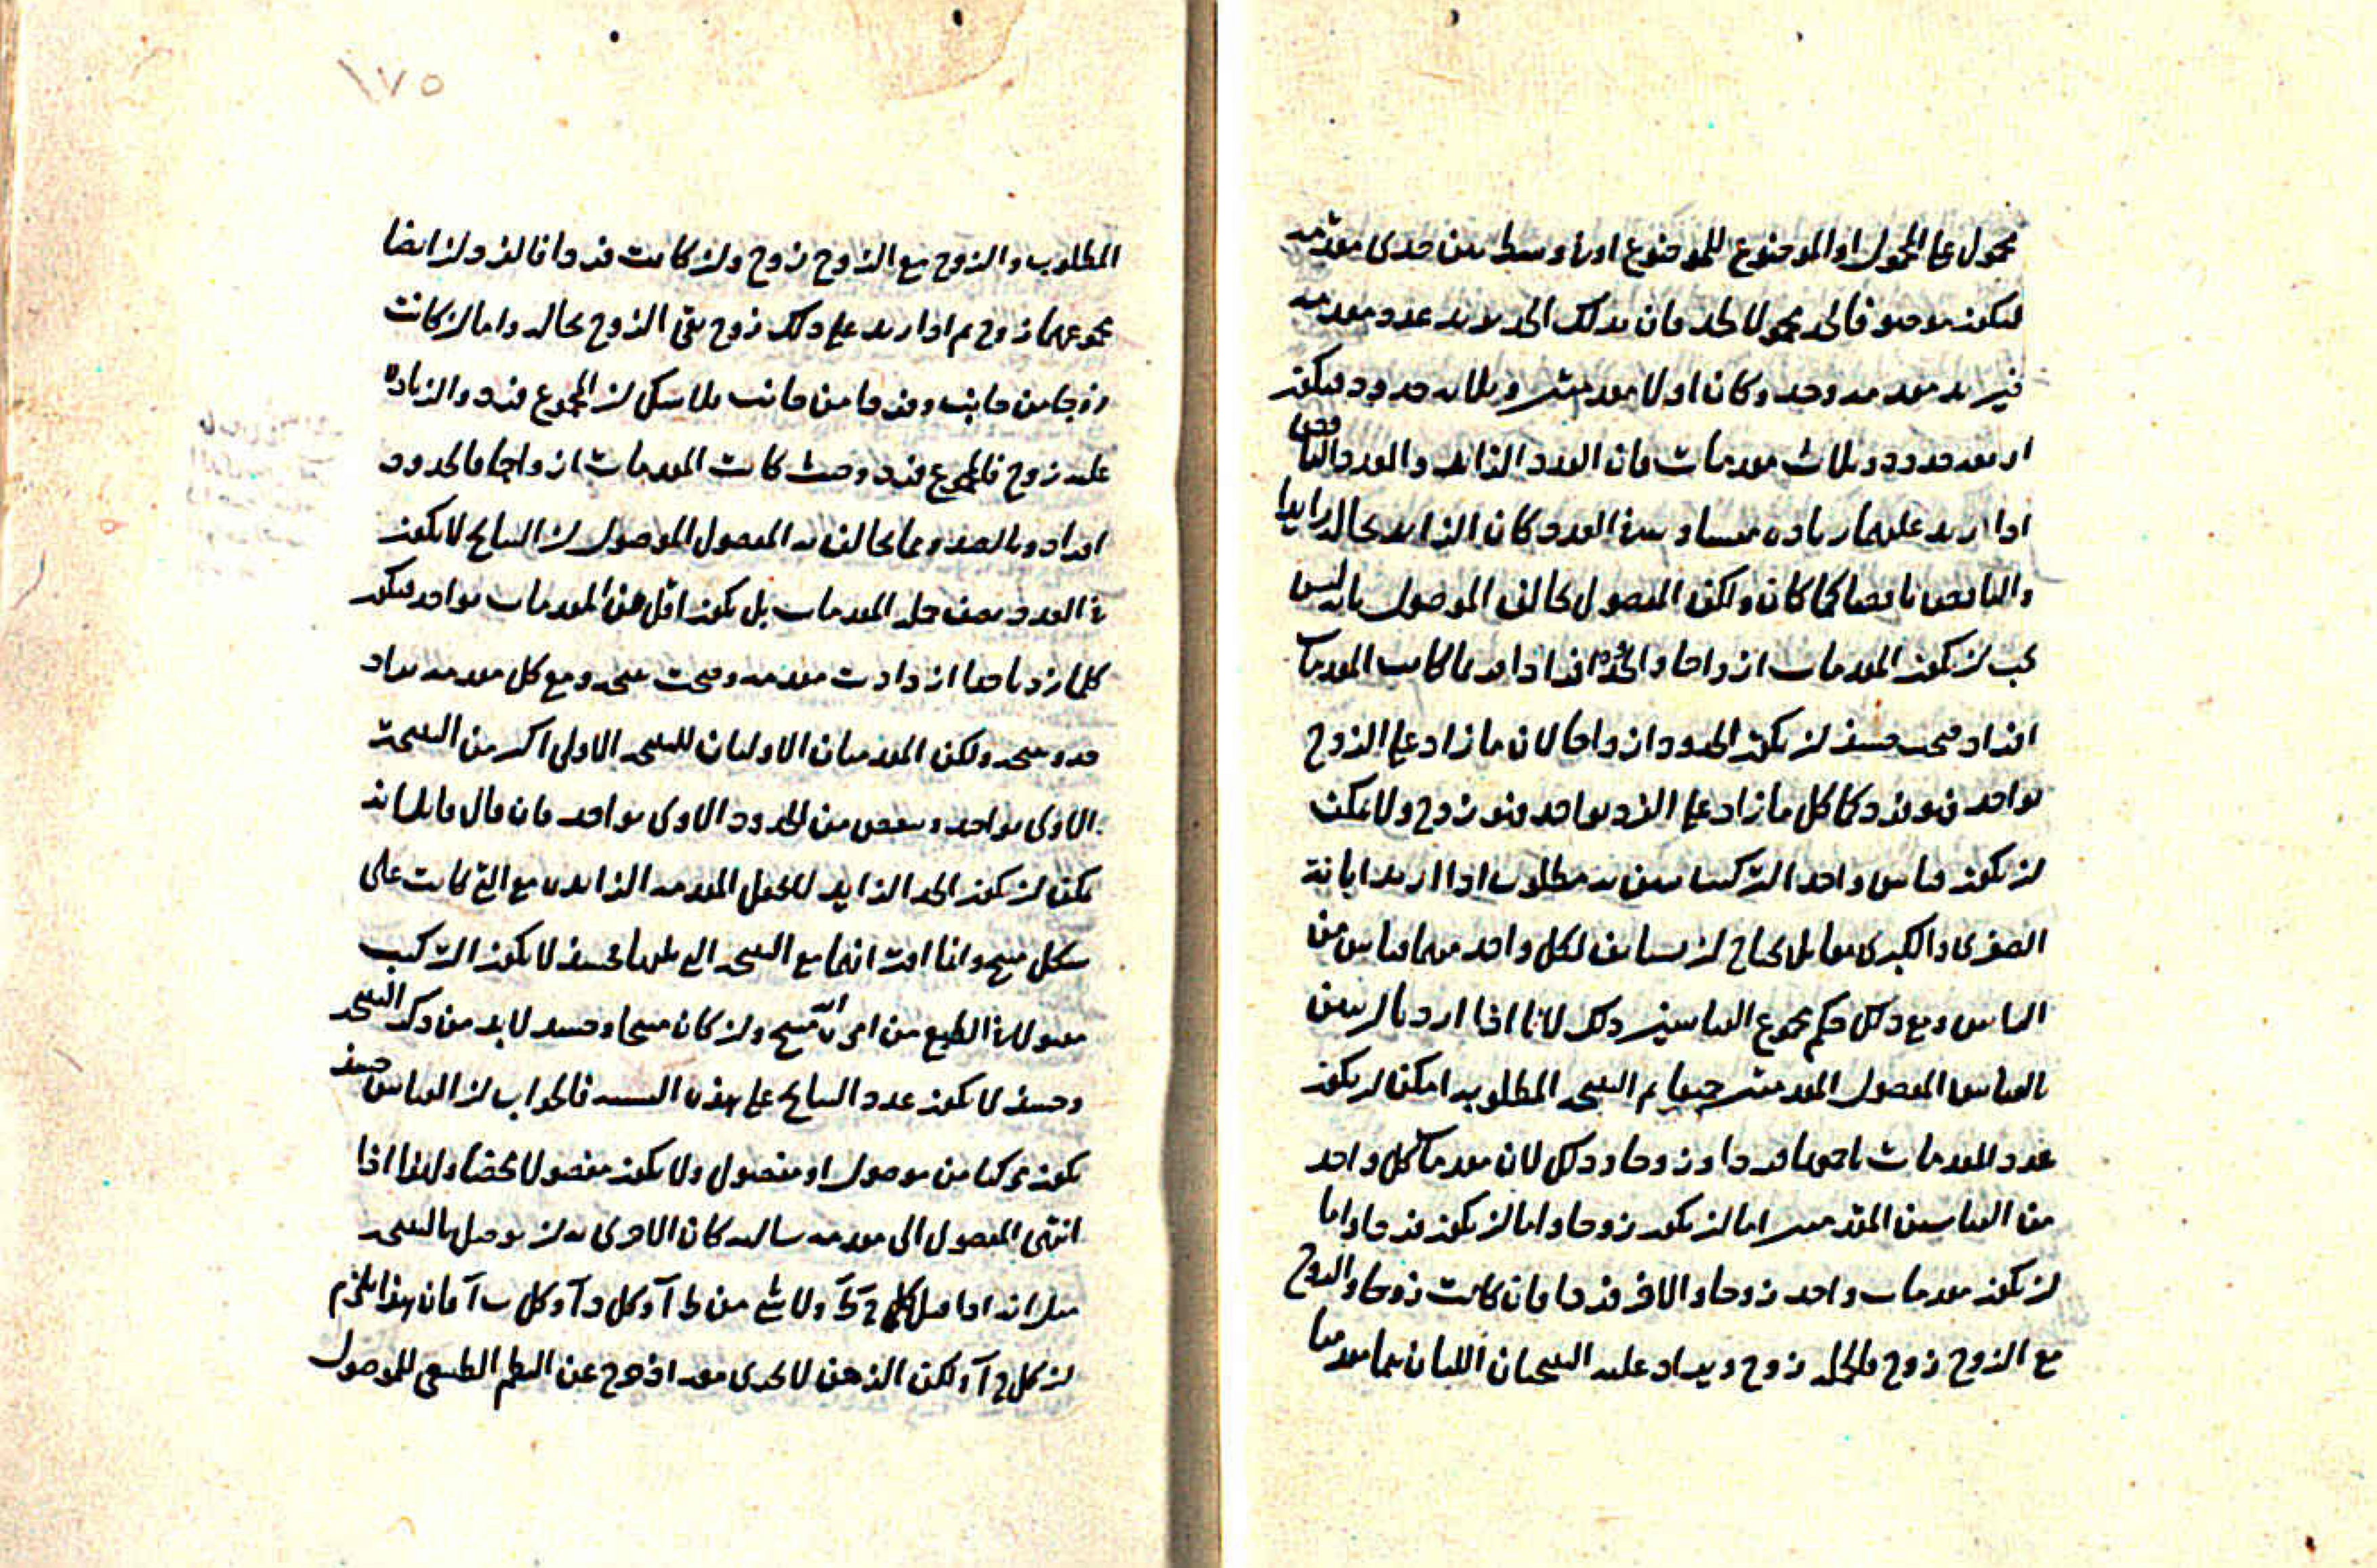 محمول على المحمول او الموضوع للموضوع او في وسط بين حدى مقدمة
ليكون موضوعا لحد محمولا لحد فان بذلك الحد يزيد عدد مقدمة
فيزيد مقدمه وحد وكان اولا مقدمتين وثلاثه حدود فيكون
اربعه حدود وثلاث مقدمات فان العدد الزايد والعدد الناقص
اذا زيد عليهما زياده متساوية في العدد كان الزايد بحاله زايدا
والناقص ناقصا كما كان ولكن المفصول يخالف الموصول بانه ليس
يجب ان يكون المقدمات ازواجا والحدود افرادا فربما كانت المقدمات
افراد فيجب حينئذ ان يكون الحدود ازواجا لان ما زاد على الزوج
بواحد فهو فرد كما كل ما زاد على الفرد بواحد فهو زوج ولا يمكن
ان يكون قياس واحد التركيب يبين به مطلوب اذا اريد ابانة
الصغرى والكبرى معا بل يحتاج ان يستانف لكل واحد منهما قياس من
القياس ومع ذلك حكم مجموع القياسين ذلك لانا اذا اردنا ان نبين
بالقياس المفصول المقدمتين جميعا ثم النتيجه المطلوبه امكن ان يكون
عدد المقدمات باجمعها فردا وزوجا وذلك لان مقدمات كل واحد
من القياسين المقدمين اما ان يكون زوجا واما ان يكون فردا واما
ان يكون مقدمات واحد زوجا والاخر فردا فان كانت زوجا والزوج
مع الزوج زوج فالجمله زوج ويزداد عليه النتيجتان اللتان هما مقدمتا
١٧٥
المطلوب والزوج مع الزوج زوج وان كانت فردا فالفردان ايضا
مجموعهما زوج ثم اذا زيد على ذلك زوج بقى الزوج بحاله واما ان كانت
زوجا من جانب وفردا من جانب فلا شك ان المجموع فرد والزياده
عليه زوج فالمجموع فرد وحيث كانت المقدمات ازواجا فالحدود
افراد وبالضد ومما يخالف به المفصول الموصول ان النتايج لا يكون
في العدد نصف جمله المقدمات بل يكون اقل من المقدمات بواحد فيكون
كلما زدنا حدا ازدادت مقدمه وصحت نتيجه ومع كل مقدمه يزداد
حد ونتيجه ولكن المقدمتان الاوليان للنتيجه الاولى اكثر من النتيجة
الاولى بواحد وينقص من الحدود الاولى بواحد فان قال قايل انه
يمكن ان يكون الحد الزايد لا يجعل المقدمه الزايده مع التي كانت على
شكل منتج وانما انت انها مع النتيجه التي تليها فحينئذ لا يكون التركيب
منتج وان كان منتجا وحينئذ لا بد من ذكر النتيجه
وحينئذ لا يكون عدد النتايج على هذه النسبه فالجواب ان القياس حينئذ
يكون مركبا من موصول او مفصول ولا يكون مفصولا محضا ولهذا اذا
انتهى المفصول الى مقدمه سالبه كان الاحرى به ان يوصل بالنتيجه
مثل انه اذا قيل كل ج ط ولا شى من ط آ وكل د آ وكل ب آ فان هذا يلزم
ان كل ج آ ولكن الذهن لا يجدى مفر اذ خرج عن النظم الطبيعى للموصول